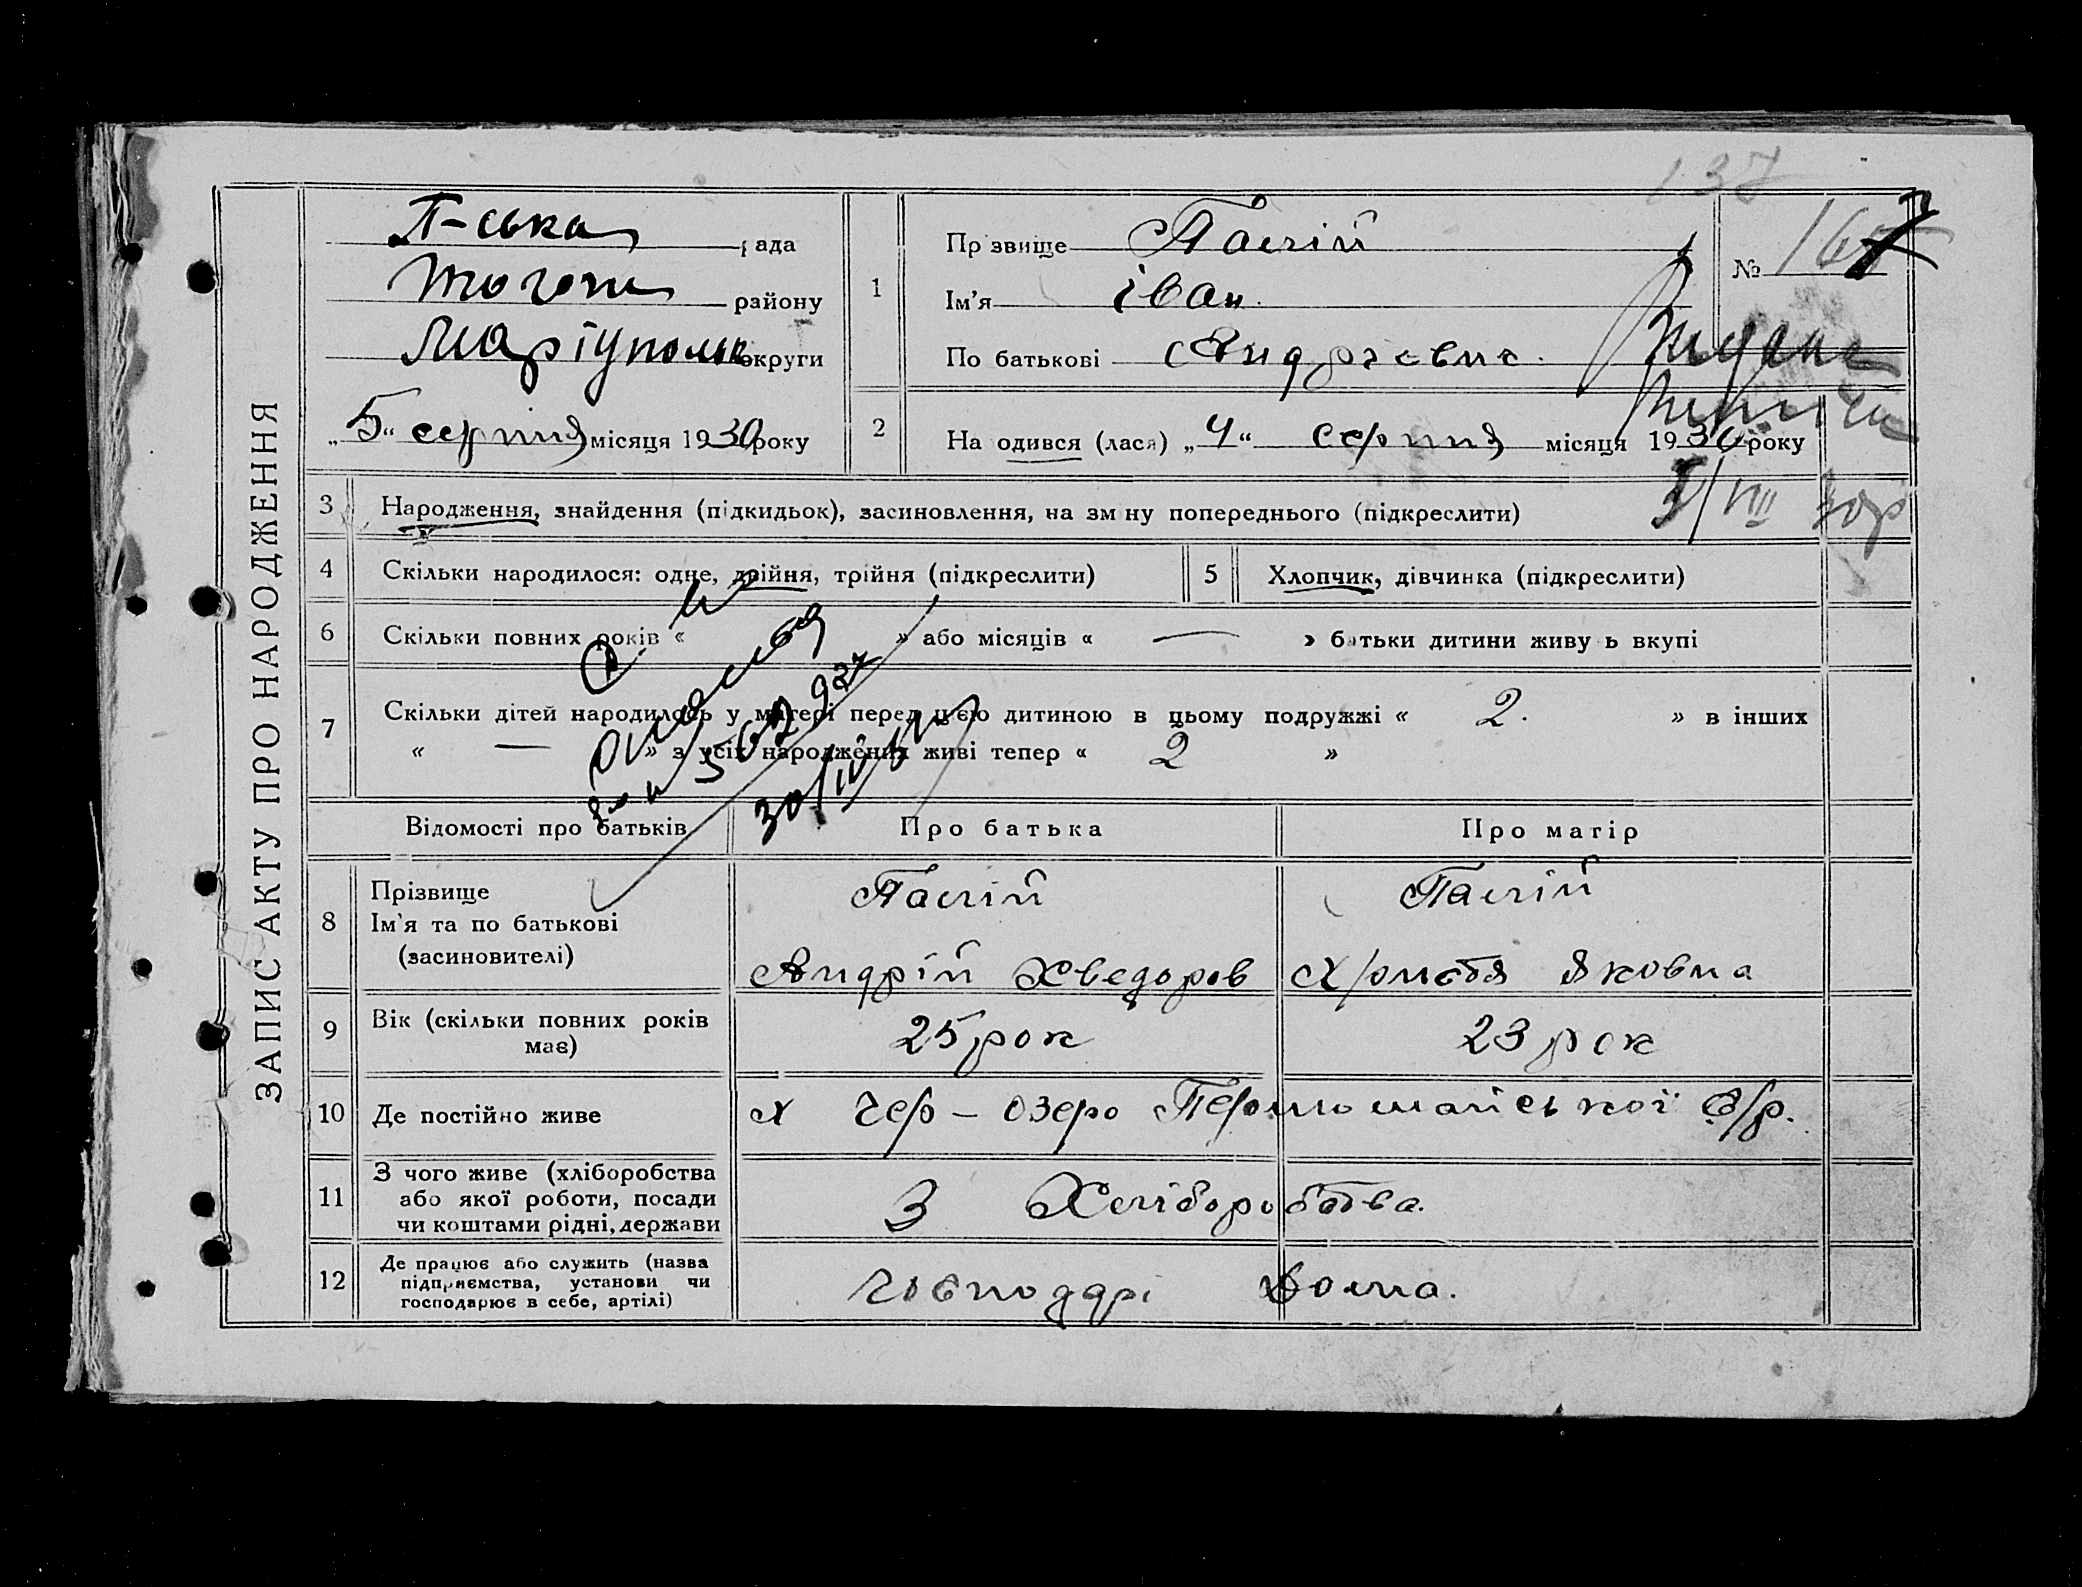 137
ЗАПИС АКТУ ПРО НАРОДЖЕННЯ
П-ська рада
району
Маріупольк округи
„5“ серпня місяця 1930 року
1
Прізвище Палій
Ім'я іван.
По батькові Андрієвич.
№ 167
Видана
2
На одився (лася) „4“ серпня місяця 1930 року
5/VIII 30р
3 Народження, знайдення (підкидьок), засиновлення, на зм ну попереднього (підкреслити)
4 Скільки народилося: одне, двійня, трійня (підкреслити)
5 Хлопчик, дівчинка (підкреслити)
6 Скільки повних років « » або місяців « — » батьки дитини живу ь вкупі
7 Скільки дітей народилось у матері перед цією дитиною в цьому подружжі « 2. » в інших
« — » з усіх народжених живі тепер « 2 »
Відомості про батьків
Про батька
Про матір
8 Прізвище
Ім'я та по батькові
(засиновителі)
Палій
Андрій Хведоров
Палій
Христя Яковна
9 Вік (скільки повних років
має)
25 рок
23 рок
10 Де постійно живе
х Чер – озеро Першомайської с/р.
11 З чого живе (хліборобства
або якої роботи, посади
чи коштами рідні, держави
З Хліборобства.
12 Де працює або служить (назва
підприємства, установи чи
господарює в себе, артілі)
господарі Дома.